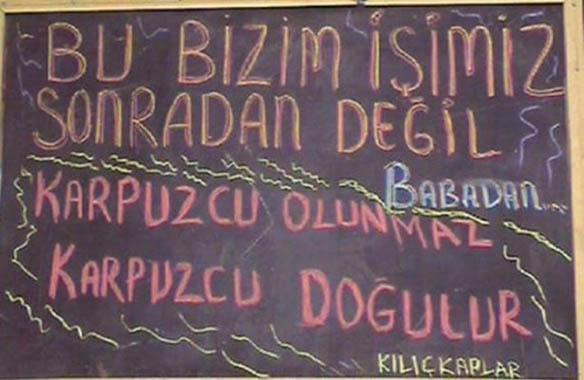 BU BİZİM İŞİMİZ
SONRADAN DEĞİL
BABADAN...
KARPUZCU OLUNMAZ
KARPUZCU DOĞULUR
KILIÇKAPLAR